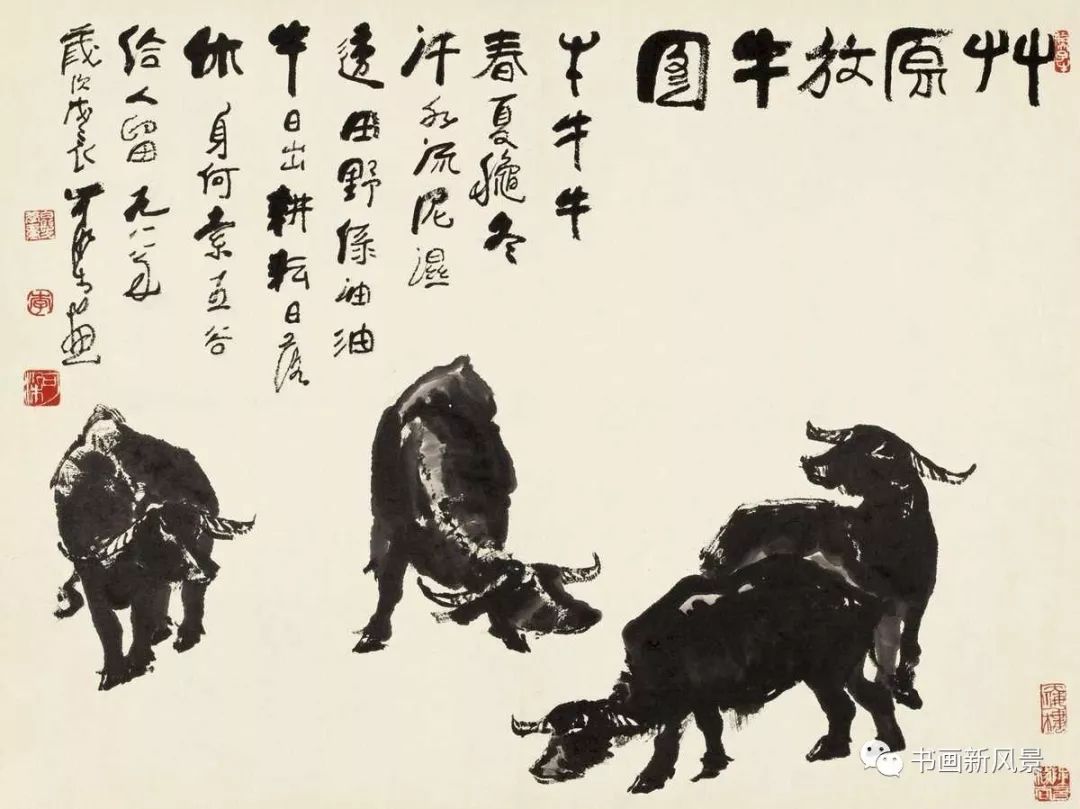 艸原放牛图
牛牛牛
春夏秋冬
汗水流泥湿
透田野绿油油
牛日出耕耘日落
休身何索五谷
给人留一九八八年
岁次戊辰
书画新风景